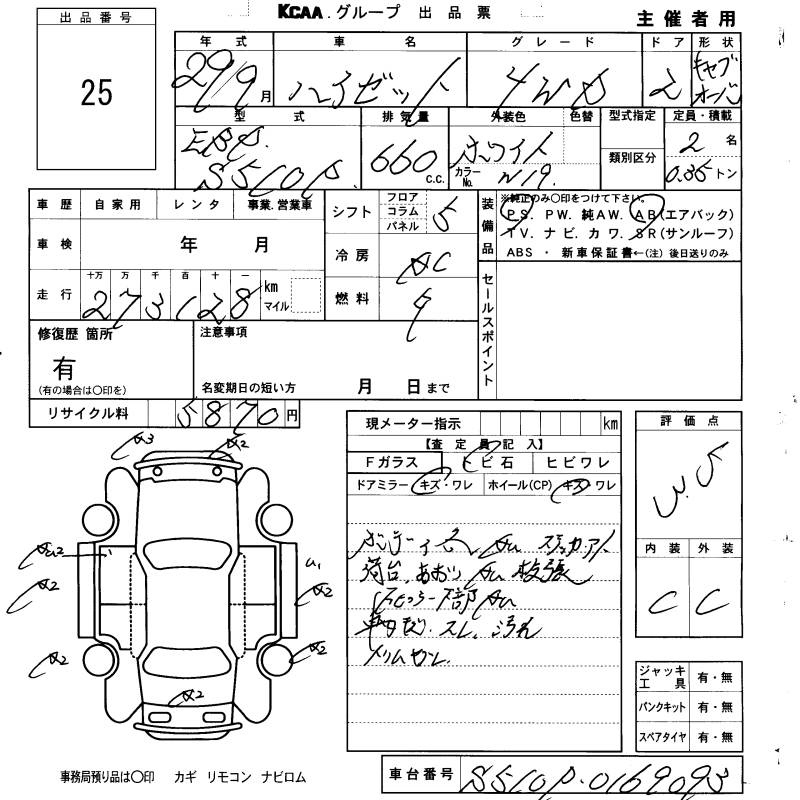 KCAA.グループ 出品票
主催者用
出品番号
25
年式 車名 グレード ドア 形状
29/9月 ハイゼット 4WD 2 キャブオーバ
型式 排気量 外装色 色替 型式指定 定員・積載
EBD. 660 c.c. ホワイト 2名
S510P. カラーNo. W19. 類別区分 0.35トン
車歴 自家用 レンタ 事業.営業車
シフト フロア コラム パネル 5
装備品 ※純正のみ〇印をつけて下さい。
PS. PW. 純AW. AB(エアバック)
TV. ナビ. カワ. SR(サンルーフ)
ABS ・ 新車保証書←(注) 後日送りのみ
車検 年 月
冷房 AC
セールスポイント
走行 十万 万 千 百 十 一
273128 km マイル
燃料 G
修復歴 箇所 注意事項
有
(有の場合は〇印を) 名変期日の短い方 月 日まで
リサイクル料 5870円
現メーター指示 km
【査定員記入】
Fガラス トビ石 ヒビワレ
ドアミラー キズ・ワレ ホイール(CP) キズ・ワレ
評価点
3.5
内装 外装
C C
A3 A2
AU2 A1
A2 A2
A2 A2
A2
荷台.あおり
スレ.汚れ
ジャッキ工具 有・無
パンクキット 有・無
スペアタイヤ 有・無
事務局預り品は〇印 カギ リモコン ナビロム
車台番号 S510P-0169093